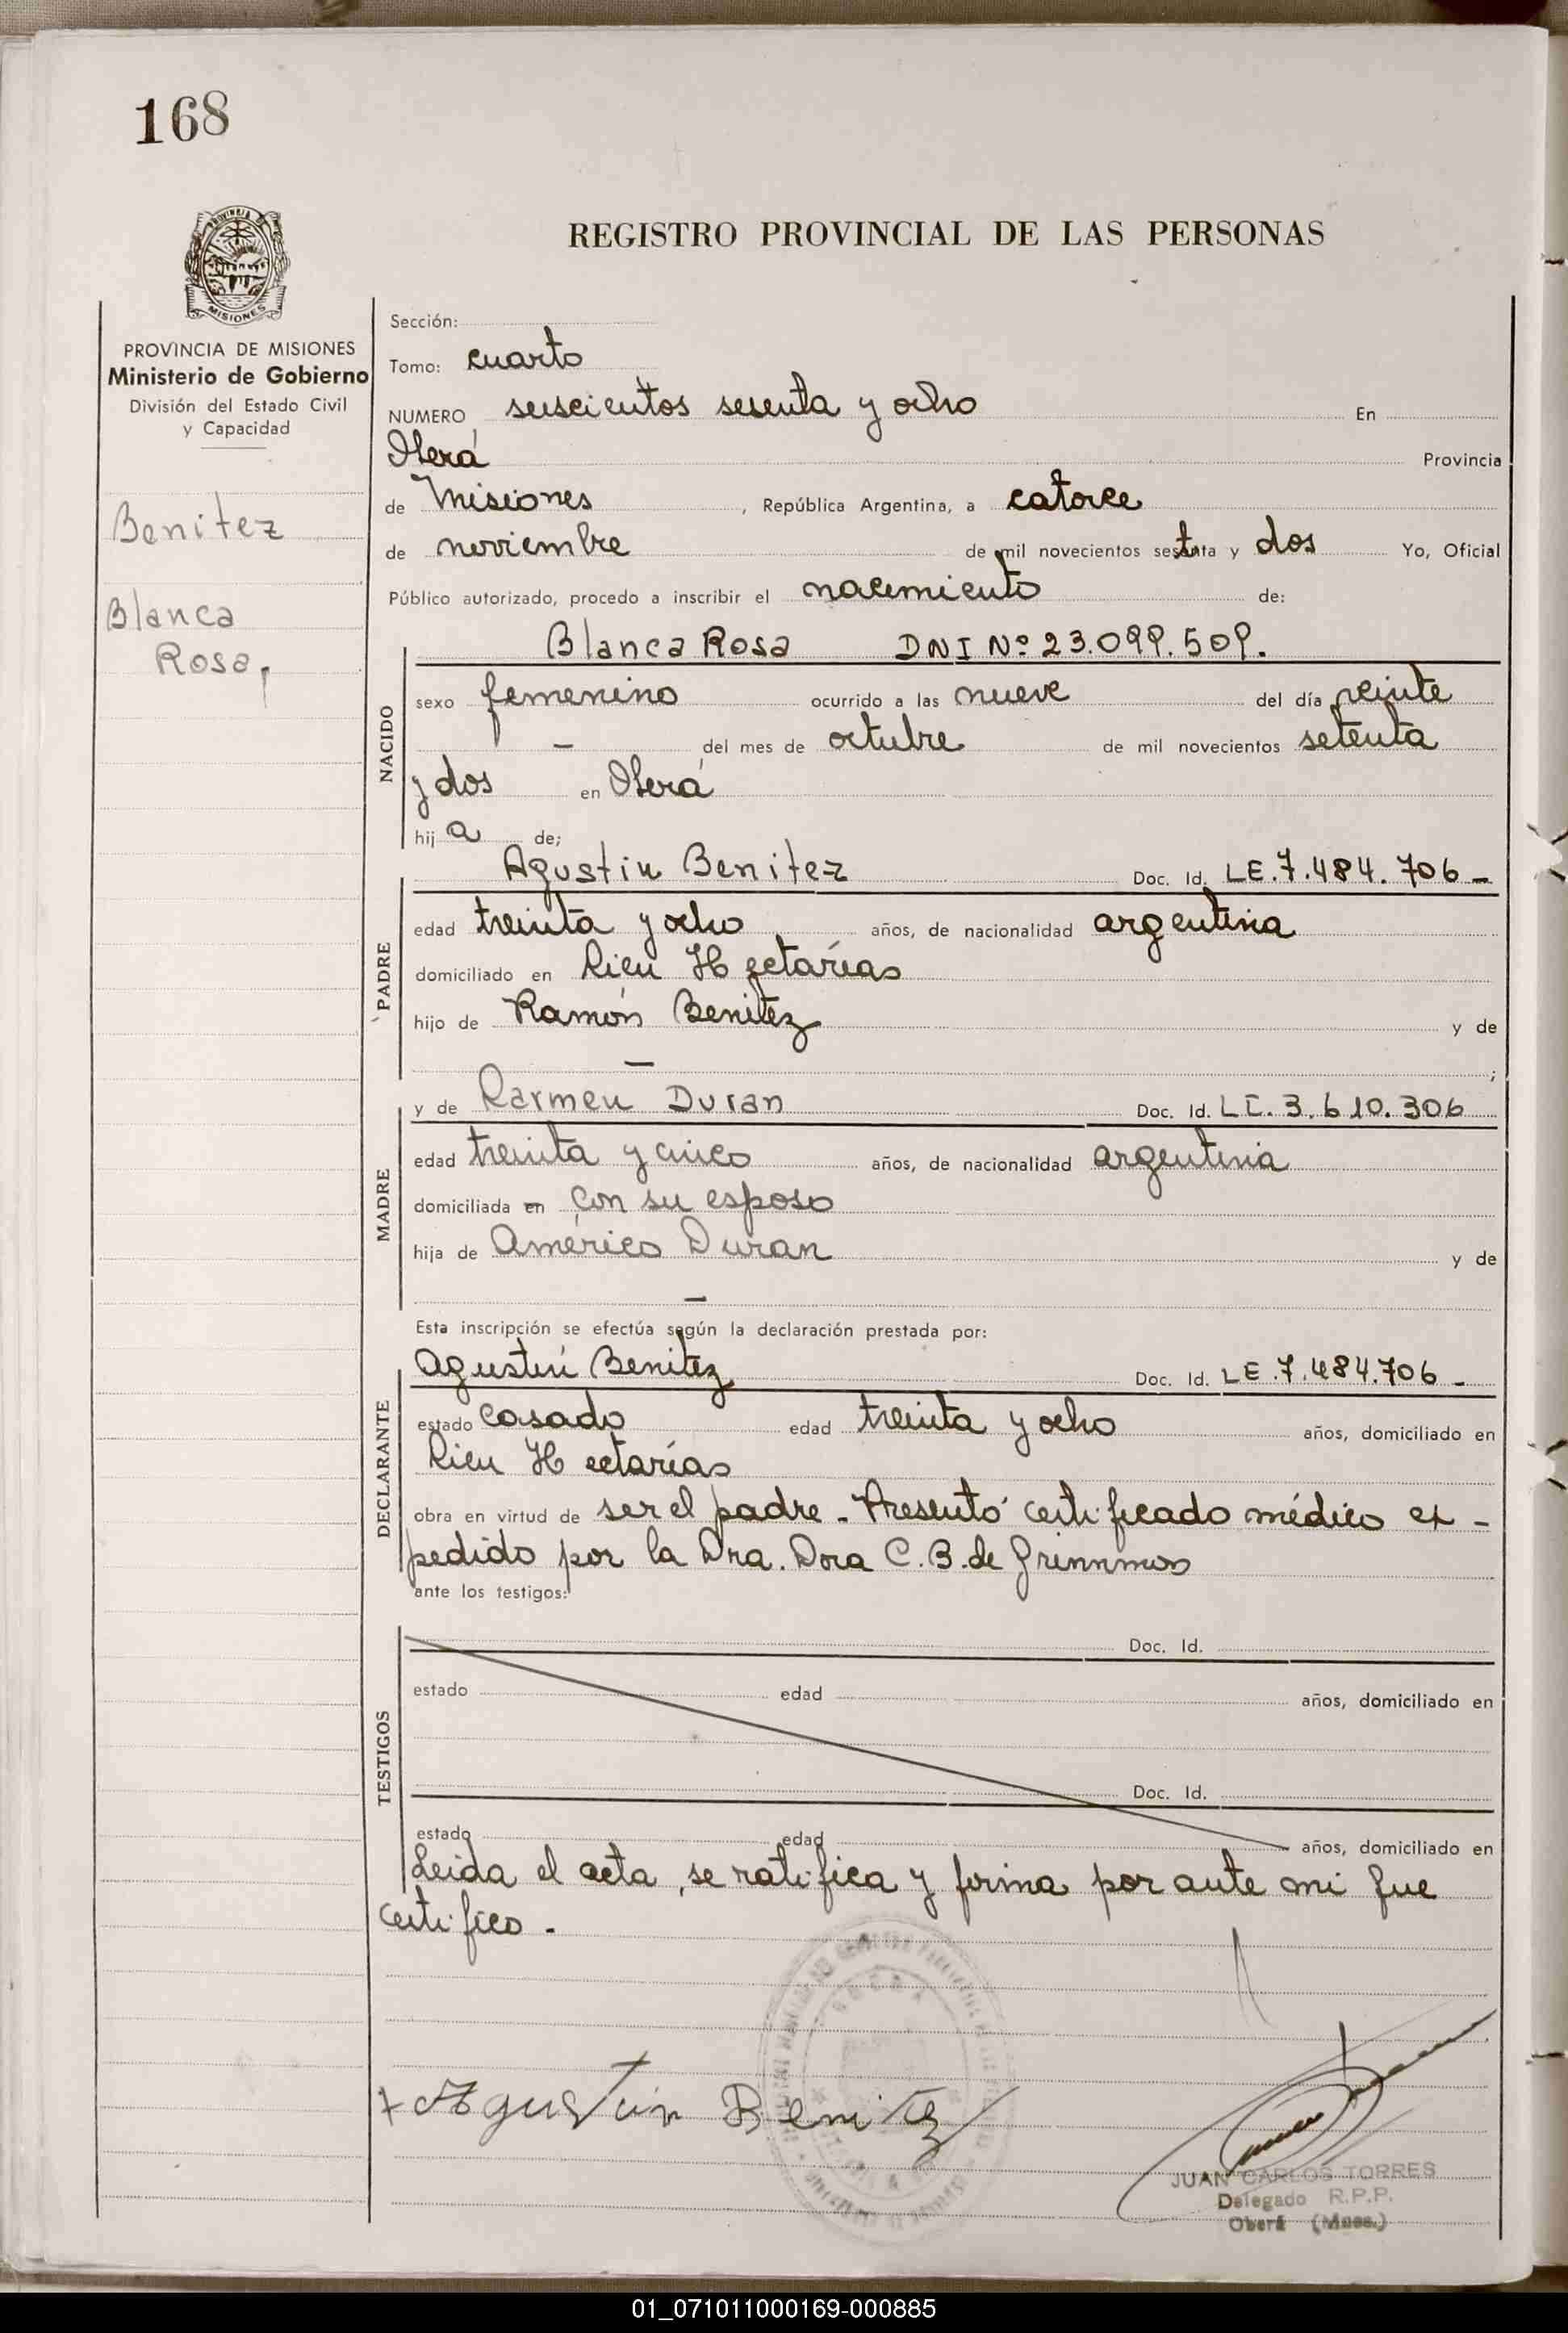 168
PROVINCIA DE
MISIONES
REGISTRO PROVINCIAL DE LAS PERSONAS
PROVINCIA DE MISIONES
Ministerio de Gobierno
División del Estado Civil
y Capacidad
Benitez
Blanca
Rosa,
Sección:
Tomo: cuarto
NUMERO seiscientos sesenta y ocho En
Oberá Provincia
de Misiones, República Argentina, a catorce
de noviembre de mil novecientos setenta y dos Yo, Oficial
Público autorizado, procedo a inscribir el nacimiento de:
Blanca Rosa DNI Nº 23.099.509.
NACIDO
sexo femenino ocurrido a las nueve del día veinte
— del mes de octubre de mil novecientos setenta
y dos en Oberá
hij a de;
Agustin Benitez Doc. Id. LE.7.484.706 -
PADRE
edad treinta y ocho años, de nacionalidad argentina
domiciliado en Cien Hectaréas
hijo de Ramón Benitez y de
— ;
y de Carmen Duran Doc. Id. LC. 3.610.306
MADRE
edad treinta y cinco años, de nacionalidad argentina
domiciliada en con su esposo
hija de Américo Duran y de
—
Esta inscripción se efectúa según la declaración prestada por:
Agustin Benitez Doc. Id. LE.7.484.706 -
DECLARANTE
estado casado edad treinta y ocho años, domiciliado en
Cien Hectaréas
obra en virtud de ser el padre - Presentó certificado médico ex -
pedido por la Dra. Dora C. B. de
ante los testigos:
Doc. Id.
TESTIGOS
estado edad años, domiciliado en
Doc. Id.
estado edad años, domiciliado en
Leida el acta, se ratifica y firma por ante mi que
certifico -
Agustin Benitez
JUAN CARLOS TORRES
Delegado R.P.P.
Oberá (Mnes.)
01_071011000169-000885